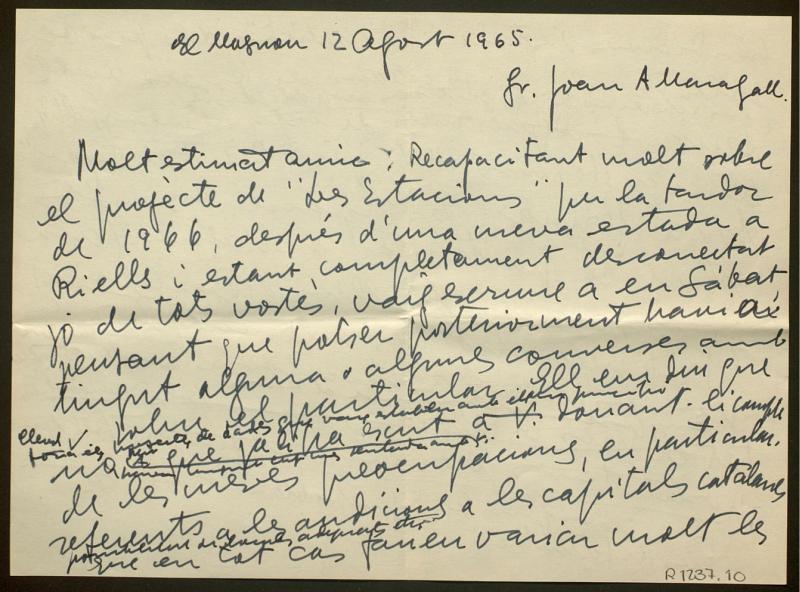 El Masnou 12 Agost 1965.
Sr. Joan A Maragall.
Molt estimat amic: Recapacitant molt sobre
el projècte de "Les Estacions" per la tardor
de 1966, després d'una meva estada a
Riells i estant completament desconectat
jo de tots vostès, vaig escriure a en Sábat
pensant que potser posteriorment havia
tingut alguna o algunes converses amb
V. sobre el particular. Ell em diu que
no
que ja ha escrit a V. donant-li compte
de les meves preocupacions, en particular,
referents a les audicions a les capitals catalanes
que en tot cas farien variar molt les
R 1237.10